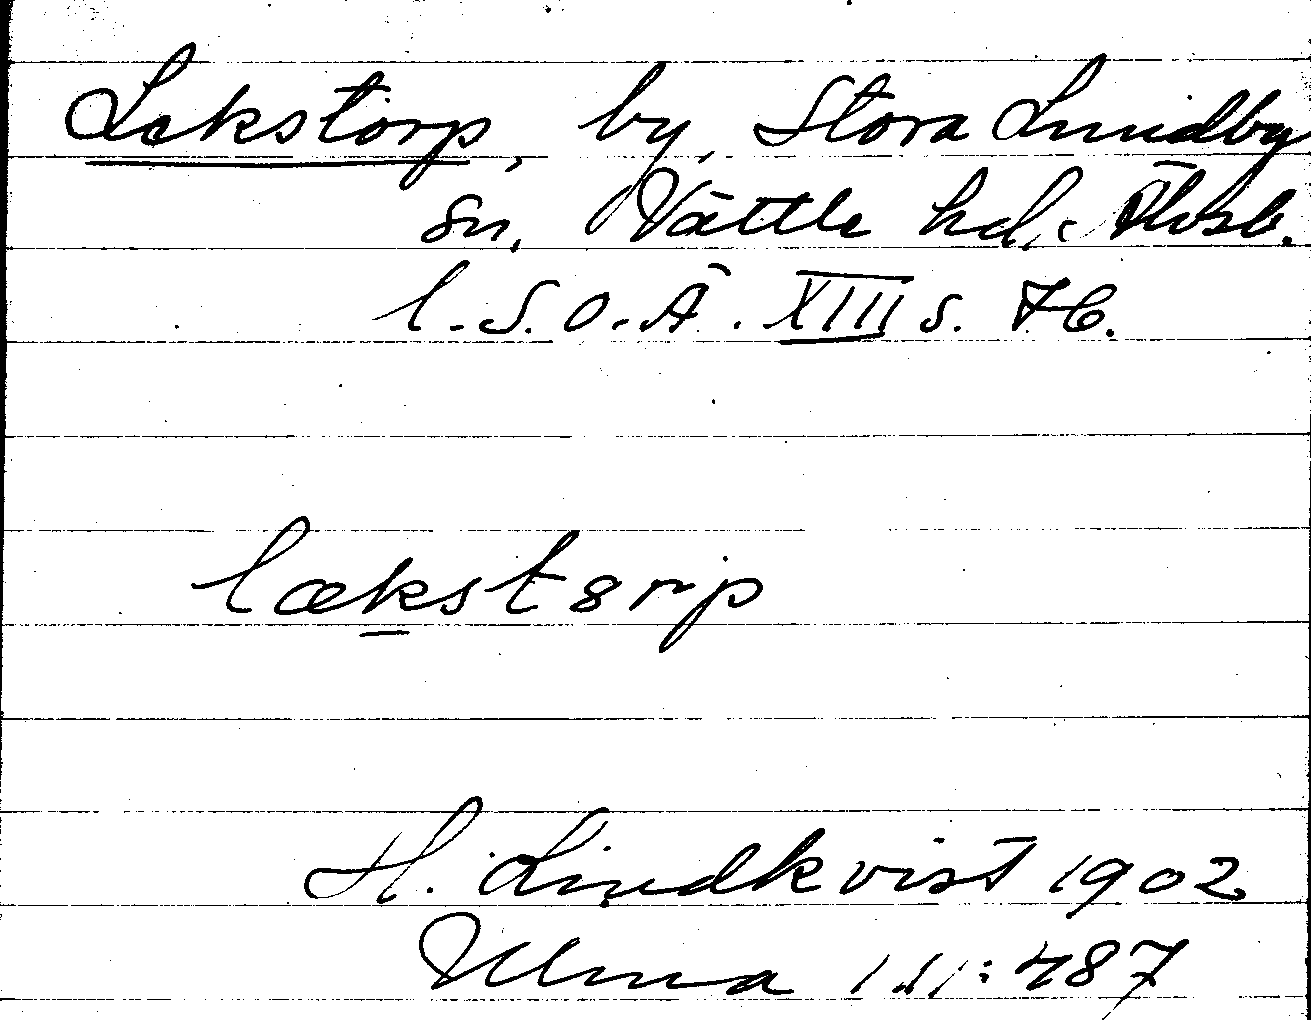 Lekstorp, by, Stora Lundby
sn, Vättle hd, Älvsb.
l. S.O.Ä. XIII s. 76.
lækstorp
H. Lindkvist 1902
Ulma 111:487